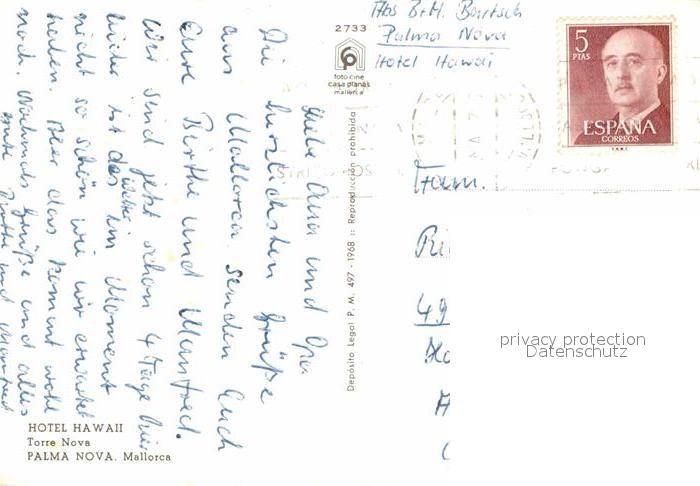 2733
foto cine
casa planas
mallorca
Abs B+M. Bartsch
Palma Nova
Hotel Hawaii
5
PTAS
ESPAÑA
CORREOS
F.N.M.T.
Liebe Oma und Opa
Die herzlichsten Grüße
aus Mallorca senden Euch
Eure Birthe und Manfred.
Wir sind jetzt schon 4 Tage hier
leider ist das Wetter im Moment
nicht so schön wie wir erwartet
haben. Aber das kommt wohl
noch. Nochmals Grüße und alles
gute Birthe und Manfred
Depósito Legal P. M. 497 - 1968 :: Reproducción prohibida
Fam.
49
privacy protection
Datenschutz
HOTEL HAWAII
Torre Nova
PALMA NOVA. Mallorca